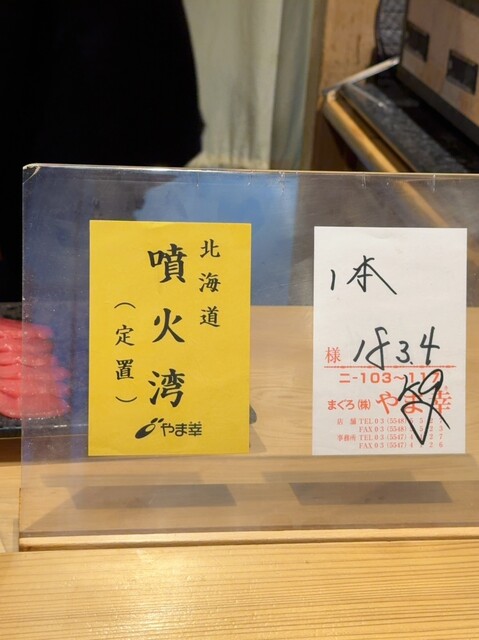 北海道
噴火湾
(定置)
やま幸
1本
183.4
様
ニ-103~117
まぐろ(株)やま幸
店舗 TEL.03(5548)
FAX03(5548)
事務所 TEL.03(5547)
FAX03(5547)